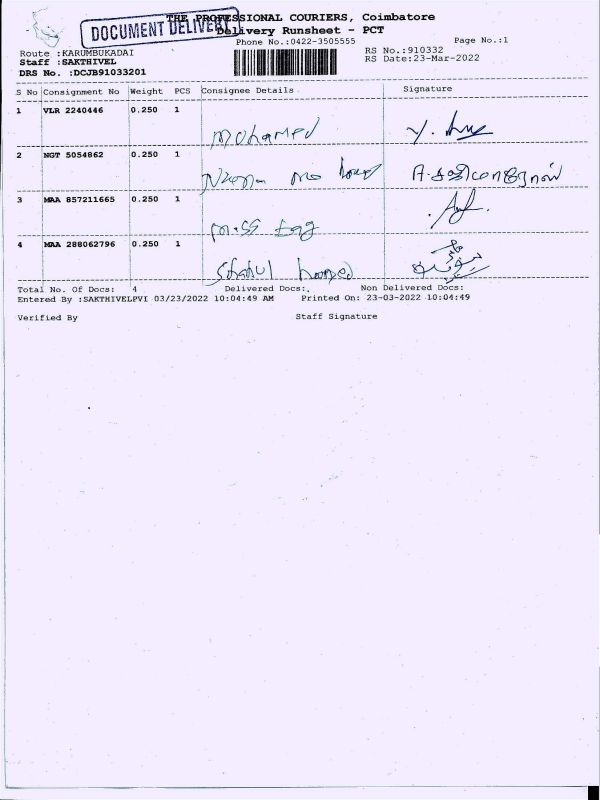 THE PROFESSIONAL COURIERS, Coimbatore
DOCUMENT DELIVERY
Delivery Runsheet - PCT
Phone No.:0422-3505555 Page No.:1
Route :KARUMBUKADAI RS No.:910332
Staff :SAKTHIVEL RS Date:23-Mar-2022
DRS No. :DCJB91033201
S No Consignment No Weight PCS Consignee Details Signature
1 VLR 2240446 0.250 1
Mohamed
2 NGT 5054862 0.250 1
3 MAA 857211665 0.250 1
4 MAA 288062796 0.250 1
Shahul hameed
Total No. Of Docs: 4 Delivered Docs: Non Delivered Docs:
Entered By :SAKTHIVELPVI 03/23/2022 10:04:49 AM Printed On: 23-03-2022 10:04:49
Verified By Staff Signature